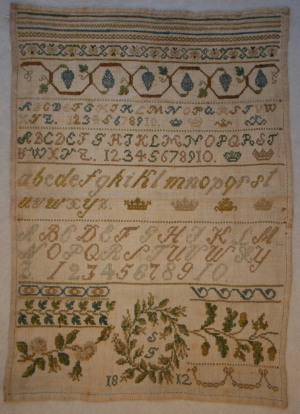 ABCDEFGHIKLMNOPQRSTVW
XYZ. 12345678910.
ABCDEFGHIKLMNOPQRST
VWXYZ. 12345678910.
abcdefghiklmnopqrst
uvwxyz.
ABCDEFGHIKLM
NOPQRSTUVWXY
Z 12345678910.
S
G
1812